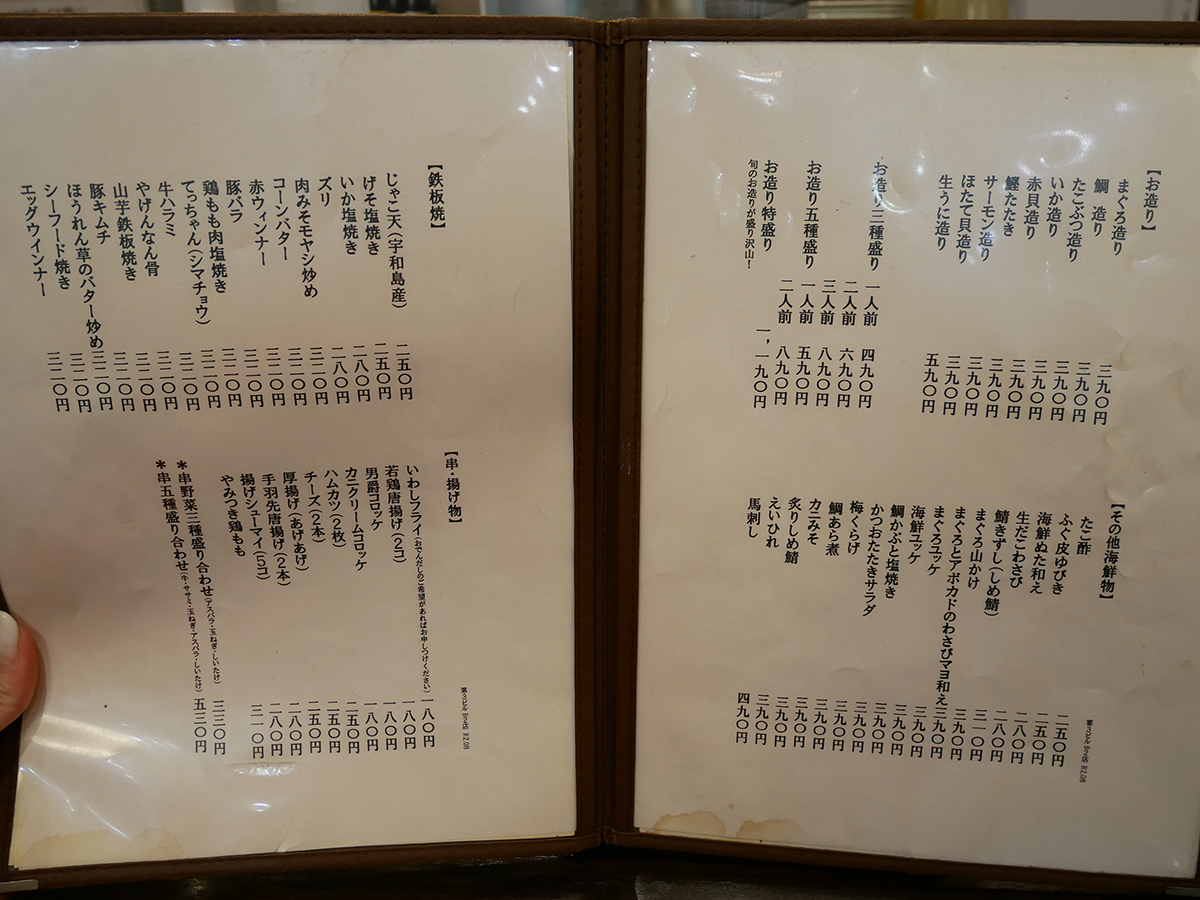 【お造り】
まぐろ造り 三九〇円
鯛 造り 三九〇円
たこぶつ造り 三九〇円
いか造り 三九〇円
赤貝造り 三九〇円
鰹たたき 三九〇円
サーモン造り 三九〇円
ほたて貝造り 三九〇円
生うに造り 五九〇円
お造り三種盛り 一人前 四九〇円
二人前 六九〇円
三人前 八九〇円
お造り五種盛り 一人前 五九〇円
二人前 八九〇円
お造り特盛り 一，一九〇円
旬のお造りが盛り沢山！
【その他海鮮物】
たこ酢 二五〇円
ふぐ皮ゆびき 二五〇円
海鮮ぬた和え 二八〇円
生だこわさび 二八〇円
鯖きずし（しめ鯖） 三一〇円
まぐろ山かけ 三九〇円
まぐろとアボカドのわさびマヨ和え 三九〇円
まぐろユッケ 三九〇円
海鮮ユッケ 三九〇円
鯛かぶと塩焼き 三九〇円
かつおたたきサラダ 三九〇円
梅くらげ 三九〇円
鯛あら煮 三九〇円
カニみそ 三九〇円
炙りしめ鯖 三九〇円
えいひれ 三九〇円
馬刺し 四九〇円
第3ビル B2店 R2.08
【鉄板焼】
じゃこ天（宇和島産） 二五〇円
げそ塩焼き 二五〇円
いか塩焼き 二八〇円
ズリ 二八〇円
肉みそモヤシ炒め 三二〇円
コーンバター 三二〇円
赤ウィンナー 三二〇円
豚バラ 三二〇円
鶏もも肉塩焼き 三二〇円
てっちゃん（シマチョウ） 三二〇円
牛ハラミ 三二〇円
やげんなん骨 三二〇円
山芋鉄板焼き 三二〇円
豚キムチ 三二〇円
ほうれん草のバター炒め 三二〇円
シーフード焼き 三二〇円
エッグウインナー 三二〇円
【串・揚げ物】
いわしフライ（おでんだしのご希望があればお申しつけください） 一八〇円
若鶏唐揚げ（２コ） 一八〇円
男爵コロッケ 一八〇円
カニクリームコロッケ 一八〇円
ハムカツ（２枚） 二五〇円
チーズ（２本） 二五〇円
厚揚げ（あげあげ） 二五〇円
手羽先唐揚げ（２本） 二八〇円
揚げシューマイ（５コ） 二八〇円
やみつき鶏もも 三一〇円
＊串野菜三種盛り合わせ（アスパラ・玉ねぎ・しいたけ） 三三〇円
＊串五種盛り合わせ（牛・ササミ・玉ねぎ・アスパラ・しいたけ） 五三〇円
第3ビル B2店 R2.08